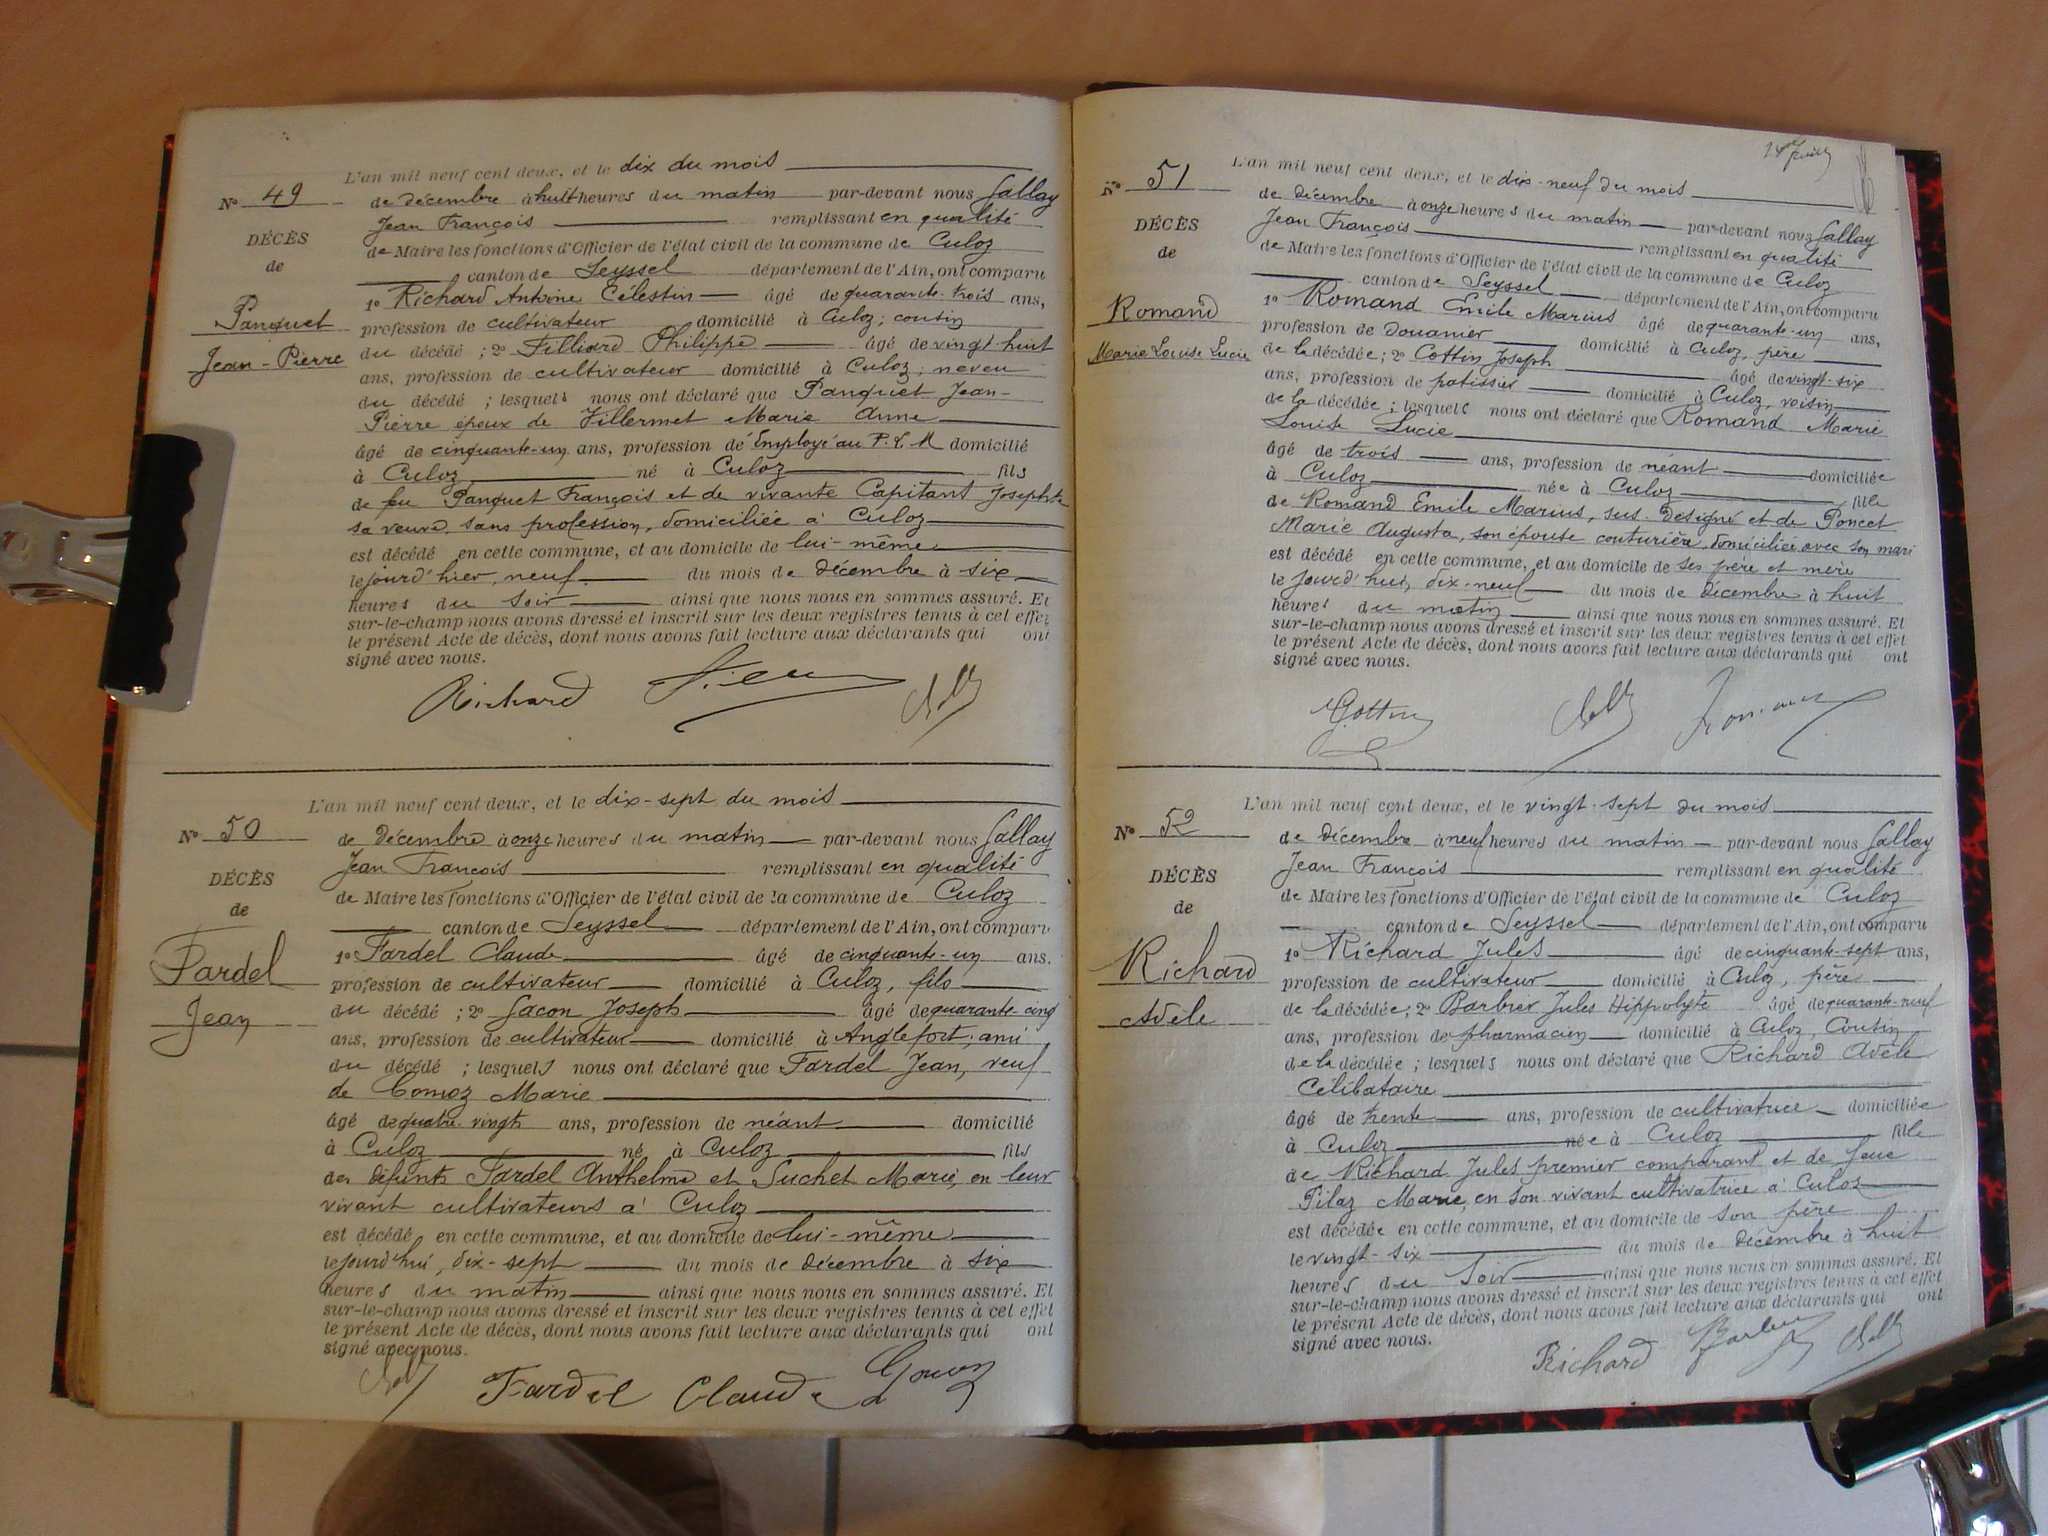 L'an mil neuf cent deux, et le dix du mois
No 49
de décembre à huit heures du matin par-devant nous Gallay
Jean François remplissant en qualité
DÉCÈS
de Maire les fonctions d'Officier de l'état civil de la commune de Culoz
de
canton de Seyssel département de l'Ain, ont comparu
1o Richard Antoine Célestin âgé de quarante-trois ans,
Panquet
profession de cultivateur domicilié à Culoz; cousin
Jean-Pierre
du décédé ; 2o Filliard Philippe âgé de vingt huit
ans, profession de cultivateur domicilié à Culoz; neveu
du décédé ; lesquels nous ont déclaré que Panquet Jean-
Pierre époux de Fillermet Marie Anne
âgé de cinquante-un ans, profession d'Employé au P.L.M domicilié
à Culoz né à Culoz fils
de feu Panquet François et de vivante Capitant Josephte
sa veuve sans profession, domiciliée à Culoz
est décédé en cette commune, et au domicile de lui-même
le jourd'hier, neuf du mois de décembre à six
heures du soir ainsi que nous nous en sommes assuré. Et
sur-le-champ nous avons dressé et inscrit sur les deux registres tenus à cet effet
le présent Acte de décès, dont nous avons fait lecture aux déclarants qui ont
signé avec nous.
Richard
L'an mil neuf cent deux, et le dix-sept du mois
No 50
de décembre à onze heures du matin par-devant nous Gallay
Jean François remplissant en qualité
DÉCÈS
de Maire les fonctions d'Officier de l'état civil de la commune de Culoz
de
canton de Seyssel département de l'Ain, ont comparu
Fardel
1o Fardel Claude âgé de cinquante-un ans.
profession de cultivateur domicilié à Culoz, fils
Jean
du décédé ; 2o Gacon Joseph âgé de quarante-cinq
ans, profession de cultivateur domicilié à Anglefort; ami
du décédé ; lesquels nous ont déclaré que Fardel Jean, veuf
de Comoz Marie
âgé de quatre-vingts ans, profession de néant domicilié
à Culoz né à Culoz fils
des défunts Fardel Anthelme et Suchet Marie, en leur
vivant cultivateurs à Culoz
est décédé en cette commune, et au domicile de lui-même
le jourd'hui, dix-sept du mois de décembre à six
heures du matin ainsi que nous nous en sommes assuré. Et
sur-le-champ nous avons dressé et inscrit sur les deux registres tenus à cet effet
le présent Acte de décès, dont nous avons fait lecture aux déclarants qui ont
signé avec nous.
Fardel Claude
L'an mil neuf cent deux, et le dix-neuf du mois
No 51
de décembre à onze heures du matin par-devant nous Gallay
Jean François remplissant en qualité
DÉCÈS
de Maire les fonctions d'Officier de l'état civil de la commune de Culoz
de
canton de Seyssel département de l'Ain, ont comparu
Romand
1o Romand Emile Marius âgé de quarante-un ans,
profession de Douanier domicilié à Culoz, père
Marie Louise Lucie
de la décédée ; 2o Cottin Joseph âgé de vingt-six
ans, profession de patissier domicilié à Culoz, voisin
de la décédée ; lesquels nous ont déclaré que Romand Marie
Louise Lucie
âgé de trois ans, profession de néant domiciliée
à Culoz née à Culoz fille
de Romand Emile Marius, sus-désigné et de Poncet
Marie Augusta, son épouse couturière, domiciliée avec son mari
est décédé en cette commune, et au domicile de ses père et mère
le jourd'hui, dix-neuf du mois de décembre à huit
heures du matin ainsi que nous nous en sommes assuré. Et
sur-le-champ nous avons dressé et inscrit sur les deux registres tenus à cet effet
le présent Acte de décès, dont nous avons fait lecture aux déclarants qui ont
signé avec nous.
L'an mil neuf cent deux, et le vingt-sept du mois
No 52
de décembre à neuf heures du matin par-devant nous Gallay
Jean François remplissant en qualité
DÉCÈS
de Maire les fonctions d'Officier de l'état civil de la commune de Culoz
de
canton de Seyssel département de l'Ain, ont comparu
Richard
1o Richard Jules âgé de cinquante-sept ans,
profession de cultivateur domicilié à Culoz, père
Adèle
de la décédée ; 2o Barbier Jules Hippolyte âgé de quarante-neuf
ans, profession de pharmacien domicilié à Culoz, Cousin
de la décédée ; lesquels nous ont déclaré que Richard Adèle
Célibataire
âgé de trente ans, profession de cultivatrice domiciliée
à Culoz née à Culoz fille
de Richard Jules premier comparant et de feue
Pilaz Marie, en son vivant cultivatrice à Culoz
est décédée en cette commune, et au domicile de son père
le vingt-six du mois de décembre à huit
heures du soir ainsi que nous nous en sommes assuré. Et
sur-le-champ nous avons dressé et inscrit sur les deux registres tenus à cet effet
le présent Acte de décès, dont nous avons fait lecture aux déclarants qui ont
signé avec nous.
Richard Barbier